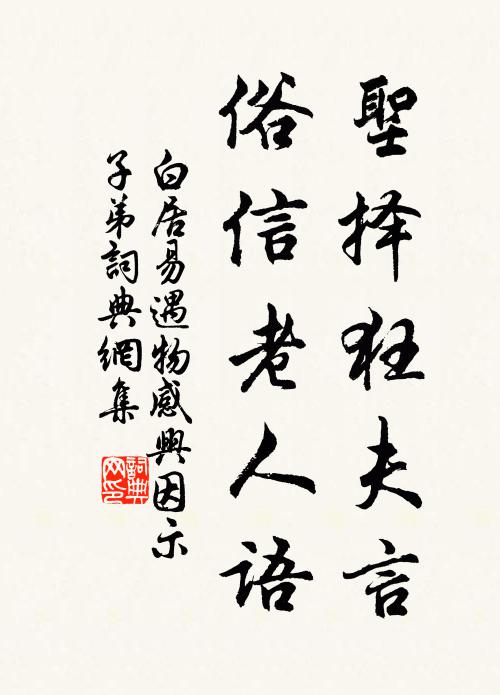 聖择狂夫言
俗信老人語
白居易遇物感興因示
子弟詞典網集
詞典网印